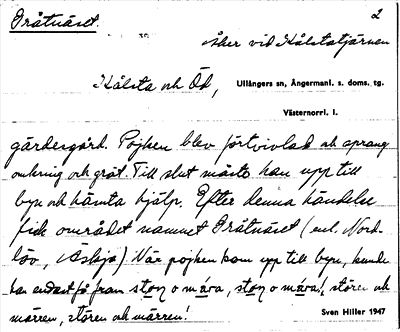 Gråtnäset.
2
åker vid Hålstatjärnen
Hålsta och Öd,
Ullångers sn, Ångermanl. s. doms. tg.
Västernorrl. l.
gärdesgård. Pojken blev förtvivlad och sprang
omkring och grät. Till slut måste han upp till
byn och hämta hjälp. Efter denna händelse
fick området namnet Gråtnäset (enl. Nord-
löv, Äskja) När pojken kom upp till byn, kunde
han endast få fram stoṇ o mära, stoṇ o mära!, stören och
märren, stören och märren!
Sven Hiller 1947